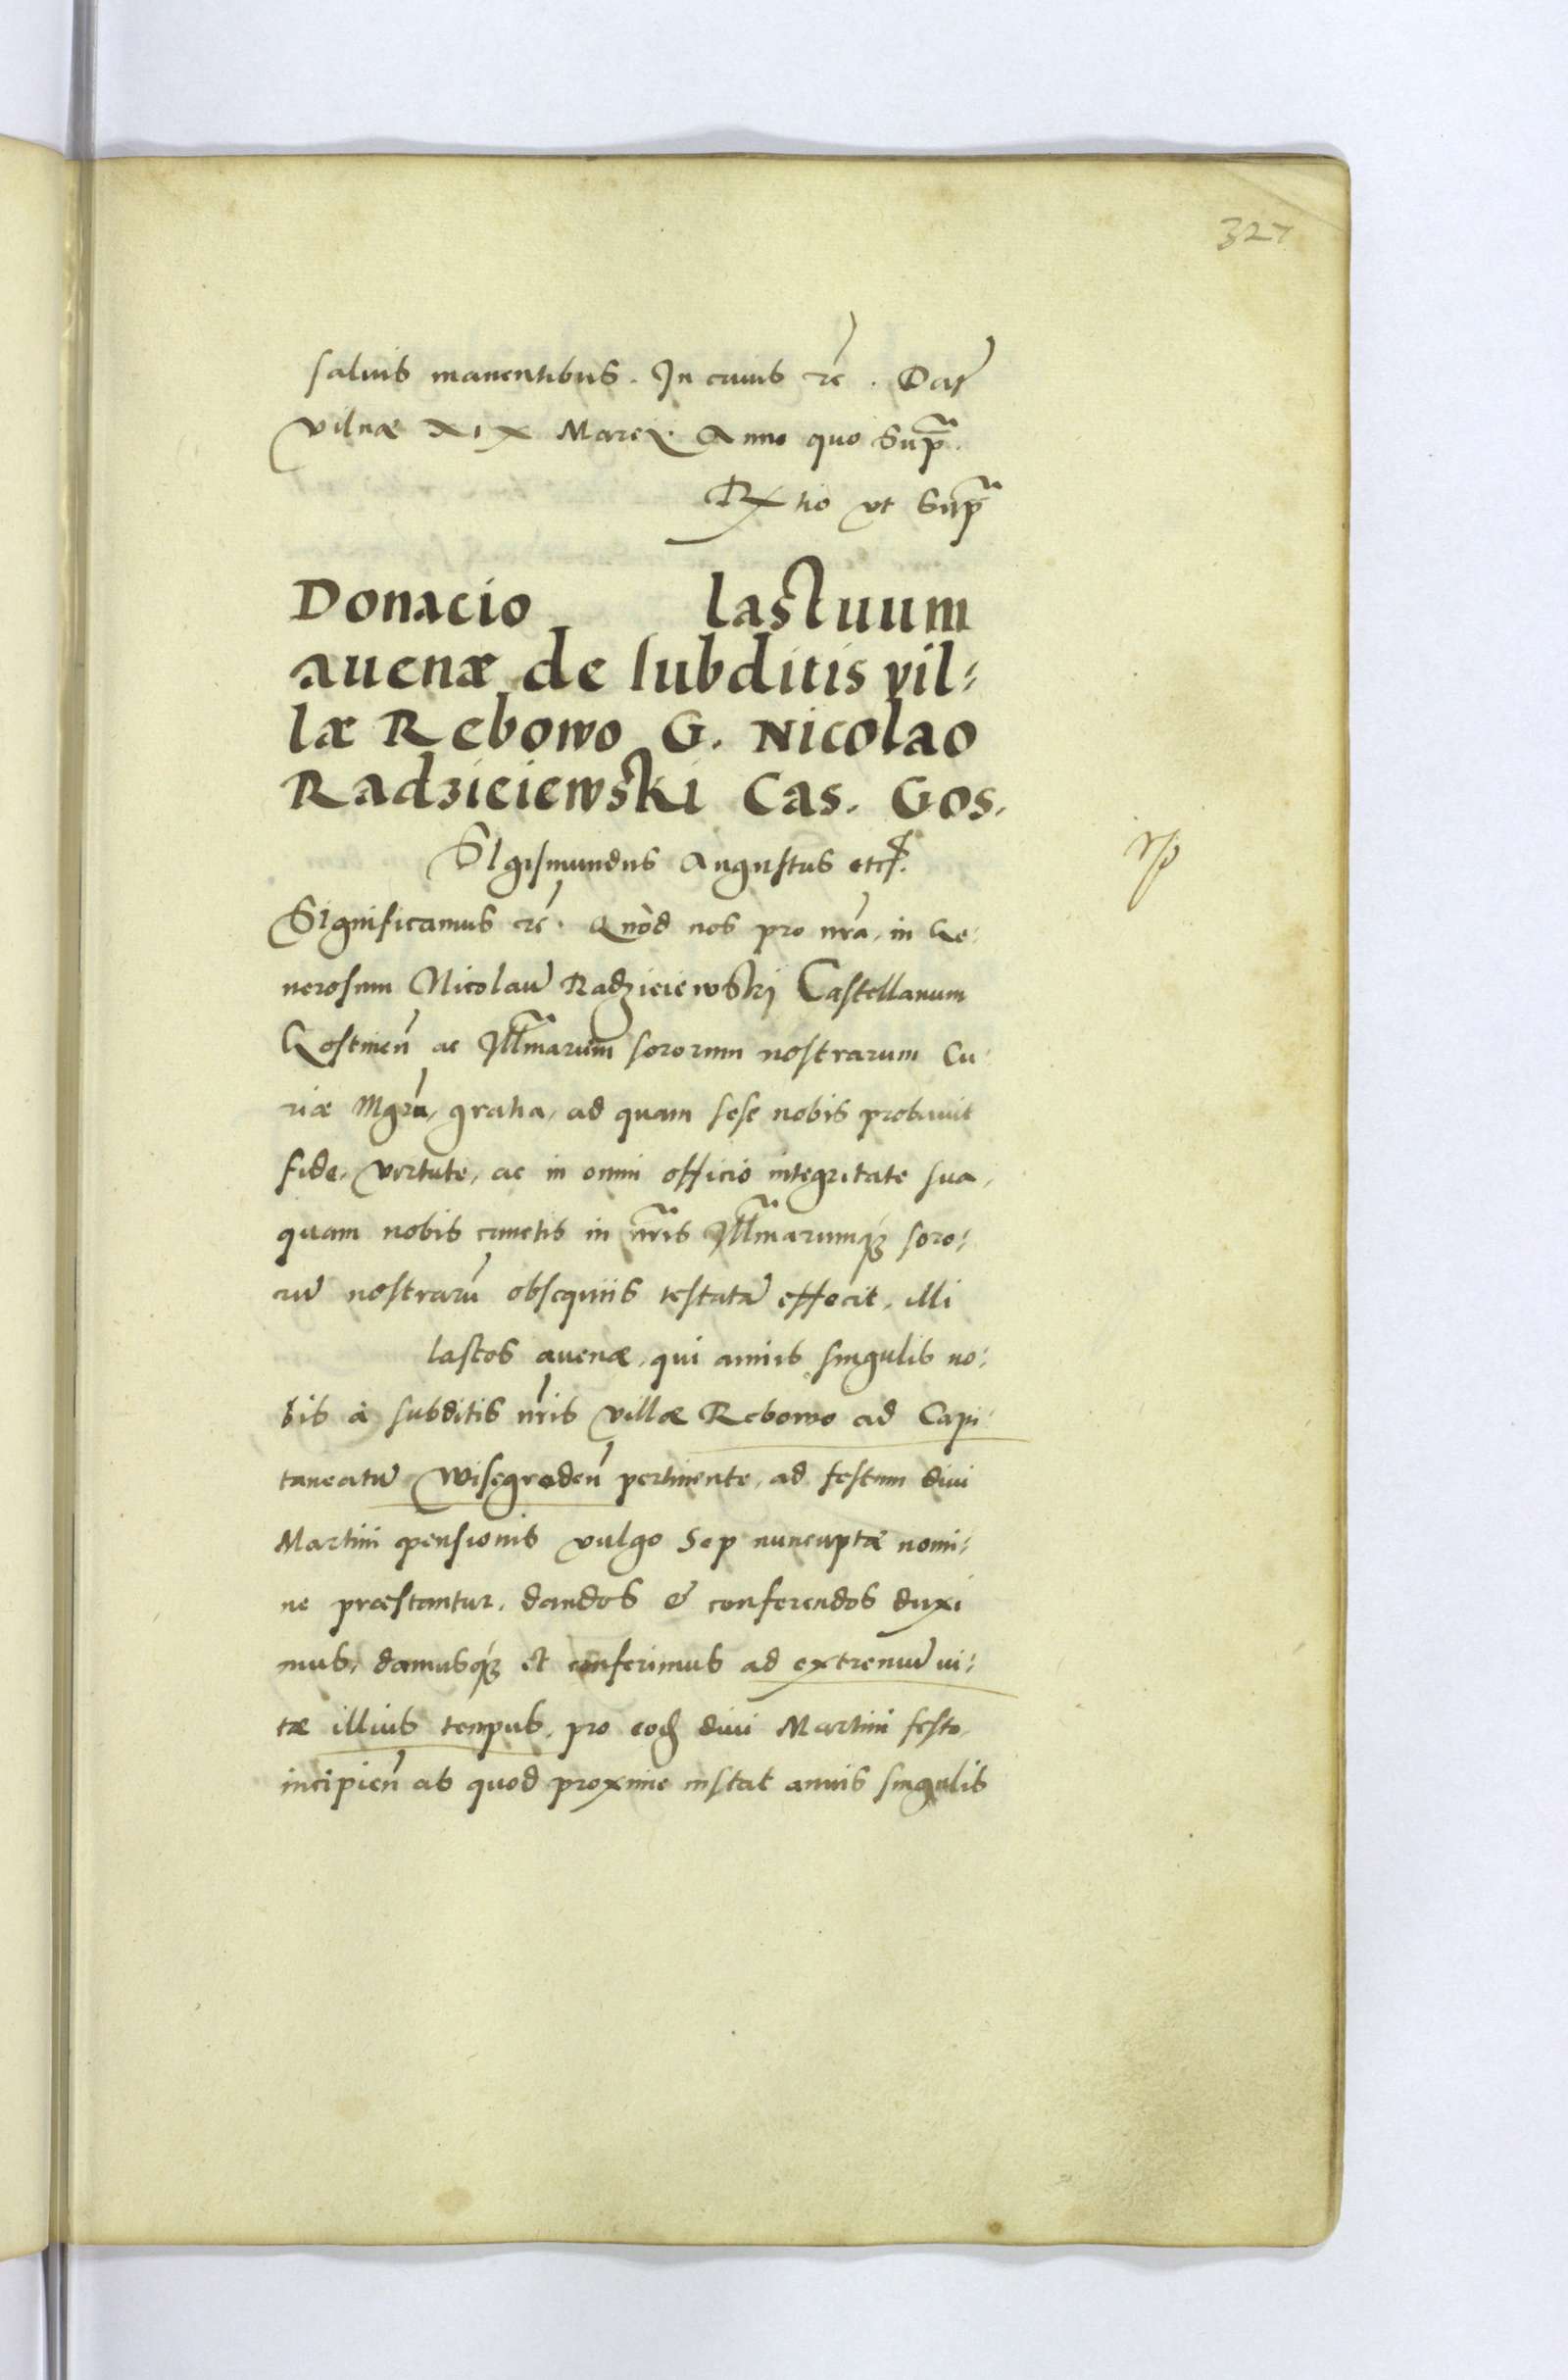 327
saluis manentibus. In cuius rē. Dat
Vilnæ XIX Marcij. Anno quo Supra.
Rtio vt Supra
Donacio lastuum
auenæ de subditis vil:
læ Rebowo G. Nicolao
Radzieiewski Cas. Gos.
SIgismundus Augustus etc.
SIgnificamus rē. Quòd nos pro nrā, in Ge:
nerosum Nicolaū Radzieiewskj Castellanum
Gostineñ ac Illmarum sororum nostrarum Cu:
riæ Mgrū, gratia, ad quam sese nobis probauit
fide, virtute, ac in omni officio integritate sua,
quam nobis cunctis in nris Illmarumq; soro:
rū nostrarū obsequiis testatā effecit, illi
lastos auenæ, qui annis singulis no:
bis à subditis nris villæ Rebowo ad Capi:
taneatū Wisegrodeñ pertinente, ad festum diui
Martini pensionis vulgo Sep nuncuptæ nomi:
ne præstantur, dandos & conferendos duxi
mus, damusq; et conferimus ad extremū ui:
tæ illius tempus, pro eod diui Martini festo,
incipieñ ab quod proxime instat annis singulis